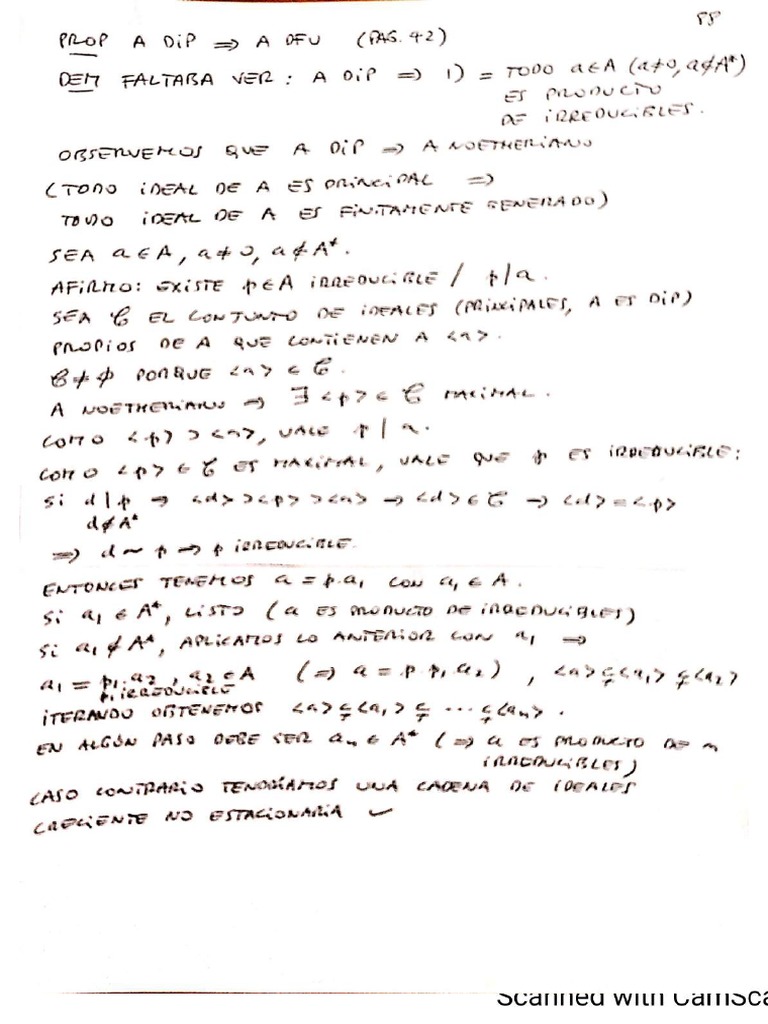 88
PROP A DiP ⇒ A DFU (PAG. 42)
DEM FALTABA VER: A DiP ⇒ 1) = TODO a∈A (a≠0, a∉A*)
ES PRODUCTO
DE IRREDUCIBLES.
OBSERVEMOS QUE A DiP ⇒ A NOETHERIANO
(TODO IDEAL DE A ES PRINCIPAL ⇒
TODO IDEAL DE A ES FINITAMENTE GENERADO)
SEA a∈A, a≠0, a∉A*.
AFIRMO: EXISTE p∈A IRREDUCIBLE / p|a.
SEA 𝒞 EL CONJUNTO DE IDEALES (PRINCIPALES, A ES DiP)
PROPIOS DE A QUE CONTIENEN A <a>.
𝒞≠∅ PORQUE <a> ∈ 𝒞.
A NOETHERIANO ⇒ ∃ <p> ∈ 𝒞 MAXIMAL.
COMO <p> ⊃ <a>, VALE p | a.
COMO <p> ∈ 𝒞 ES MAXIMAL, VALE QUE p ES IRREDUCIBLE:
Si d|p → <d> ⊃ <p> ⊃ <a> → <d> ∈ 𝒞 → <d> = <p>
d∉A*
⇒ d ~ p → p IRREDUCIBLE.
ENTONCES TENEMOS a = p.a₁ CON a₁ ∈ A.
Si a₁ ∈ A*, LISTO (a ES PRODUCTO DE IRREDUCIBLES)
Si a₁ ∉ A*, APLICAMOS LO ANTERIOR CON a₁ ⇒
a₁ = p₁.a₂, a₂ ∈ A (⇒ a = p.p₁.a₂), <a> ⊊ <a₁> ⊊ <a₂>
p₁ IRREDUCIBLE
ITERANDO OBTENEMOS <a> ⊊ <a₁> ⊊ ... ⊊ <aₙ>.
EN ALGÚN PASO DEBE SER aₙ ∈ A* (⇒ a ES PRODUCTO DE n
IRREDUCIBLES)
CASO CONTRARIO TENDRÍAMOS UNA CADENA DE IDEALES
CRECIENTE NO ESTACIONARIA ✓
Scanned with CamSca